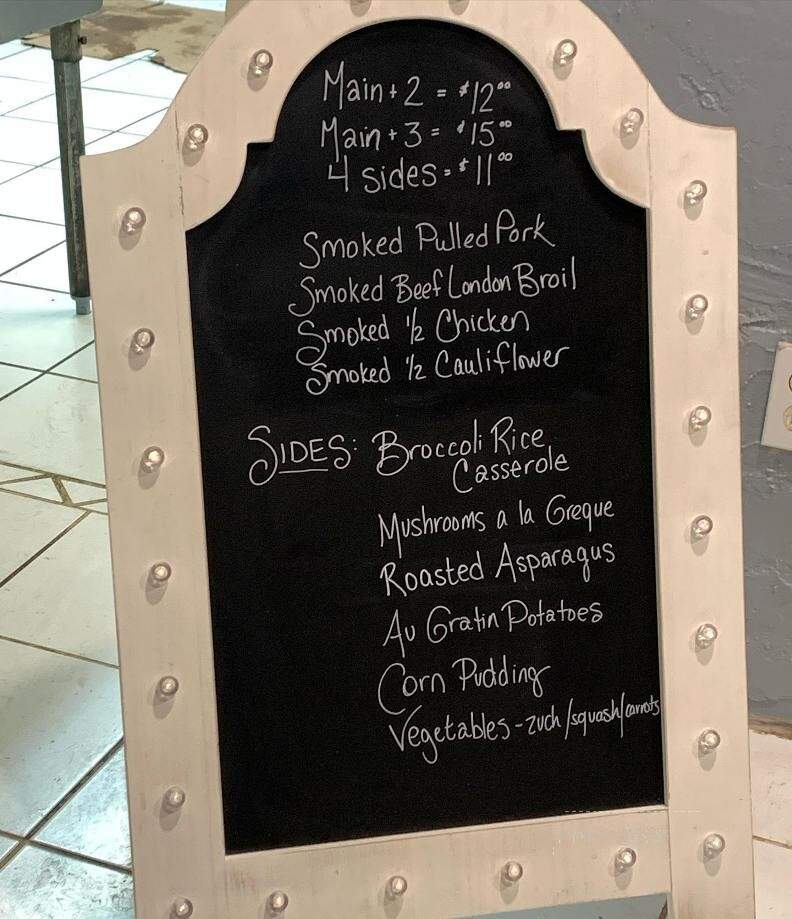 Main + 2 = $12⁰⁰
Main + 3 = $15⁰⁰
4 sides = $11⁰⁰
Smoked Pulled Pork
Smoked Beef London Broil
Smoked 1/2 Chicken
Smoked 1/2 Cauliflower
SIDES: Broccoli Rice
Casserole
Mushrooms a la Greque
Roasted Asparagus
Au Gratin Potatoes
Corn Pudding
Vegetables - zuch/squash/carrots